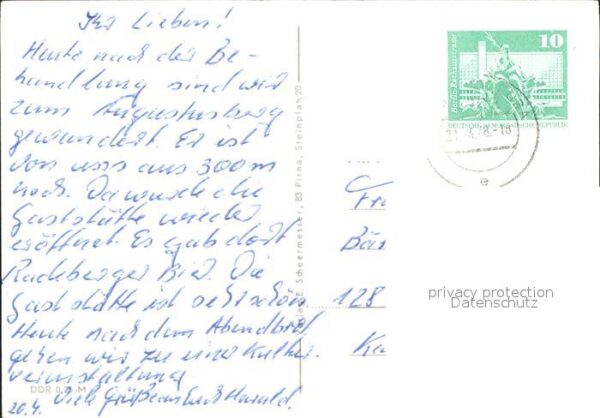 Ihr Lieben!
Heute nach der Be-
handlung sind wir
zum Augustusberg
gewandert. Er ist
von uns aus 300 m
hoch. Da wurde die
Gaststätte wieder
eröffnet. Es gab dort
Radeberger Bier. Die
Gaststätte ist sehr schön
Heute nach dem Abendbrot
gehen wir zu einer Kultur-
veranstaltung.
Viele Grüße an Euch Harald.
20.4.
DDR 0,25 M
E. Scheermesser, 83 Pirna, Steinplatz 20
10
Berlin, Rathausstraße
DEUTSCHE DEMOKRATISCHE REPUBLIK
-18
e
Bär
128
privacy protection
Datenschutz